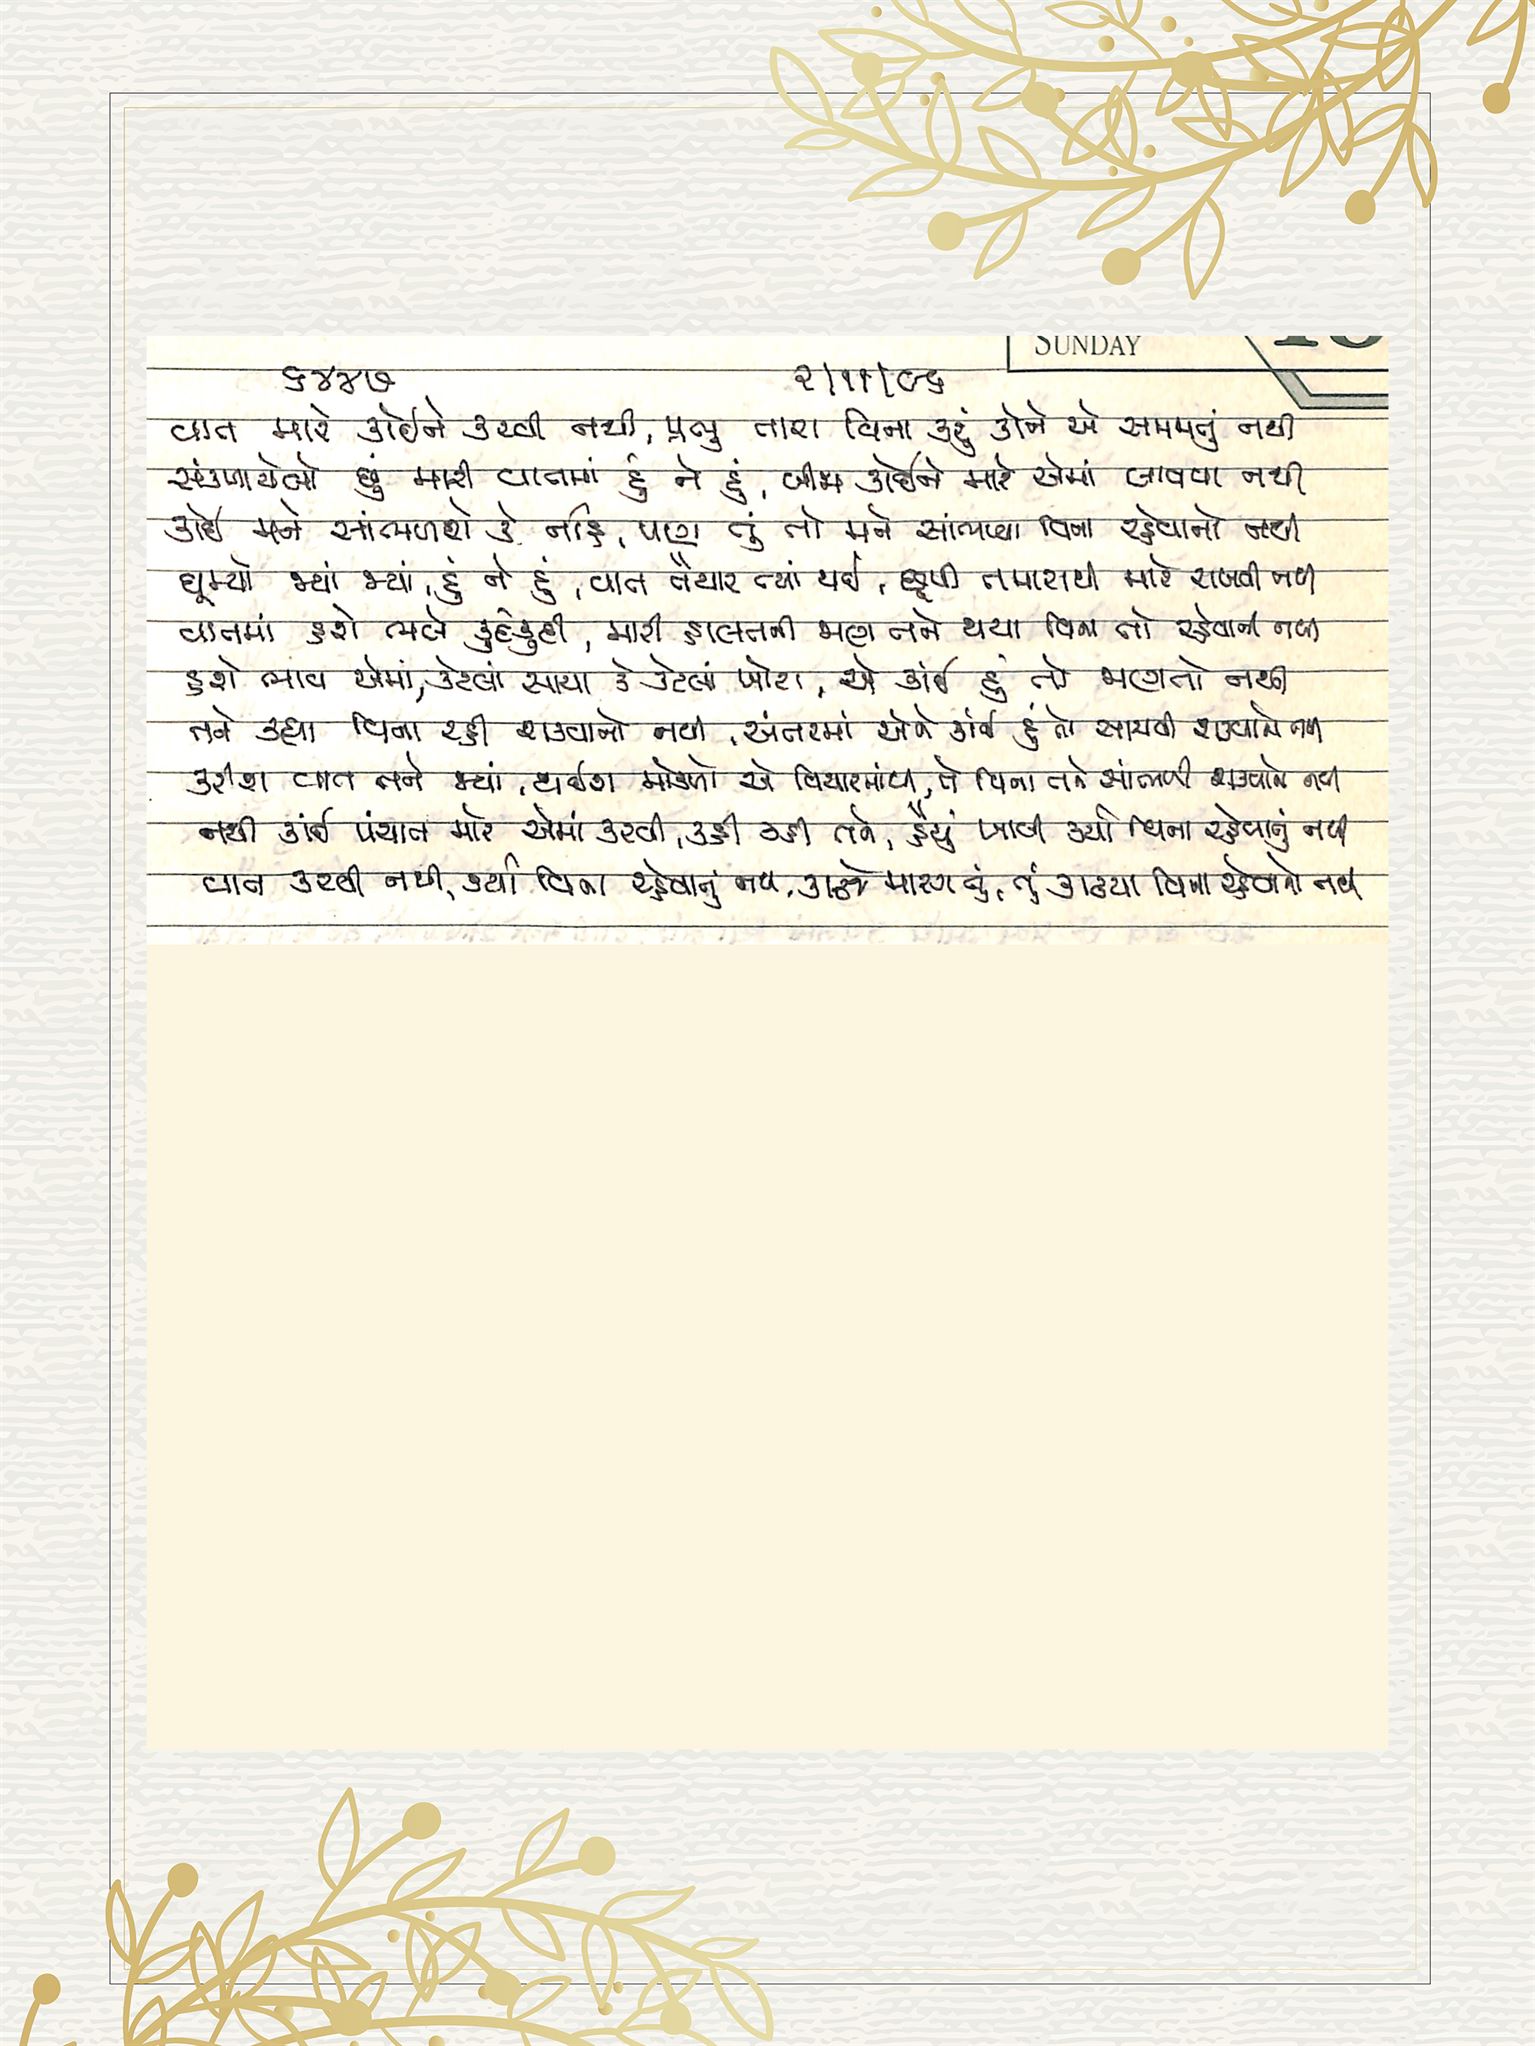 SUNDAY
૬૪૪૭ ૨/૧૧/૯૬
વાત મારે કોઈને કરવી નથી, પ્રભુ તારા વિના કહું કોને એ સમજાતું નથી
સંકળાયેલો છું મારી વાતમાં હું ને હું, બીજા કોઈને મારે એમાં લાવવા નથી
કોઈ મને સાંભળશે કે નહિ, પણ તું તો મને સાંભળ્યા વિના રહેવાનો નથી
ઘૂમ્યો જ્યાં જ્યાં, હું ને હું, વાત તૈયાર ત્યાં થઈ, છૂપી તમારાથી મારે રાખવી નથી
વાતમાં હશે ભલે મારી હાલતની જાણ તને થયા વિના તો રહેવાની નથી
હશે ભાવ એમાં, કેટલાં સાચા કે કેટલાં ખોટા, એ કાંઈ હું તો જાણતો નથી
તને કહ્યા વિના રહી શકવાનો નથી, અંતરમાં એને કાંઈ હું તો સાચવી શકવાનો નથી
કરીશ વાત તને જ્યાં, થઈશ મોકળો એ વિચારમાંથી, તે વિના તને સાંભળી શકવાનો નથી
નથી કાંઈ પંચાત મારે એમાં કરવી, કહી કહી તને, હૈયું ખાલી કર્યા વિના રહેવાનું નથી
વાત કરવી નથી, કર્યા વિના રહેવાનું નથી, કાઢજે મારગ તું, તું કાઢયા વિના રહેવાનો નથી